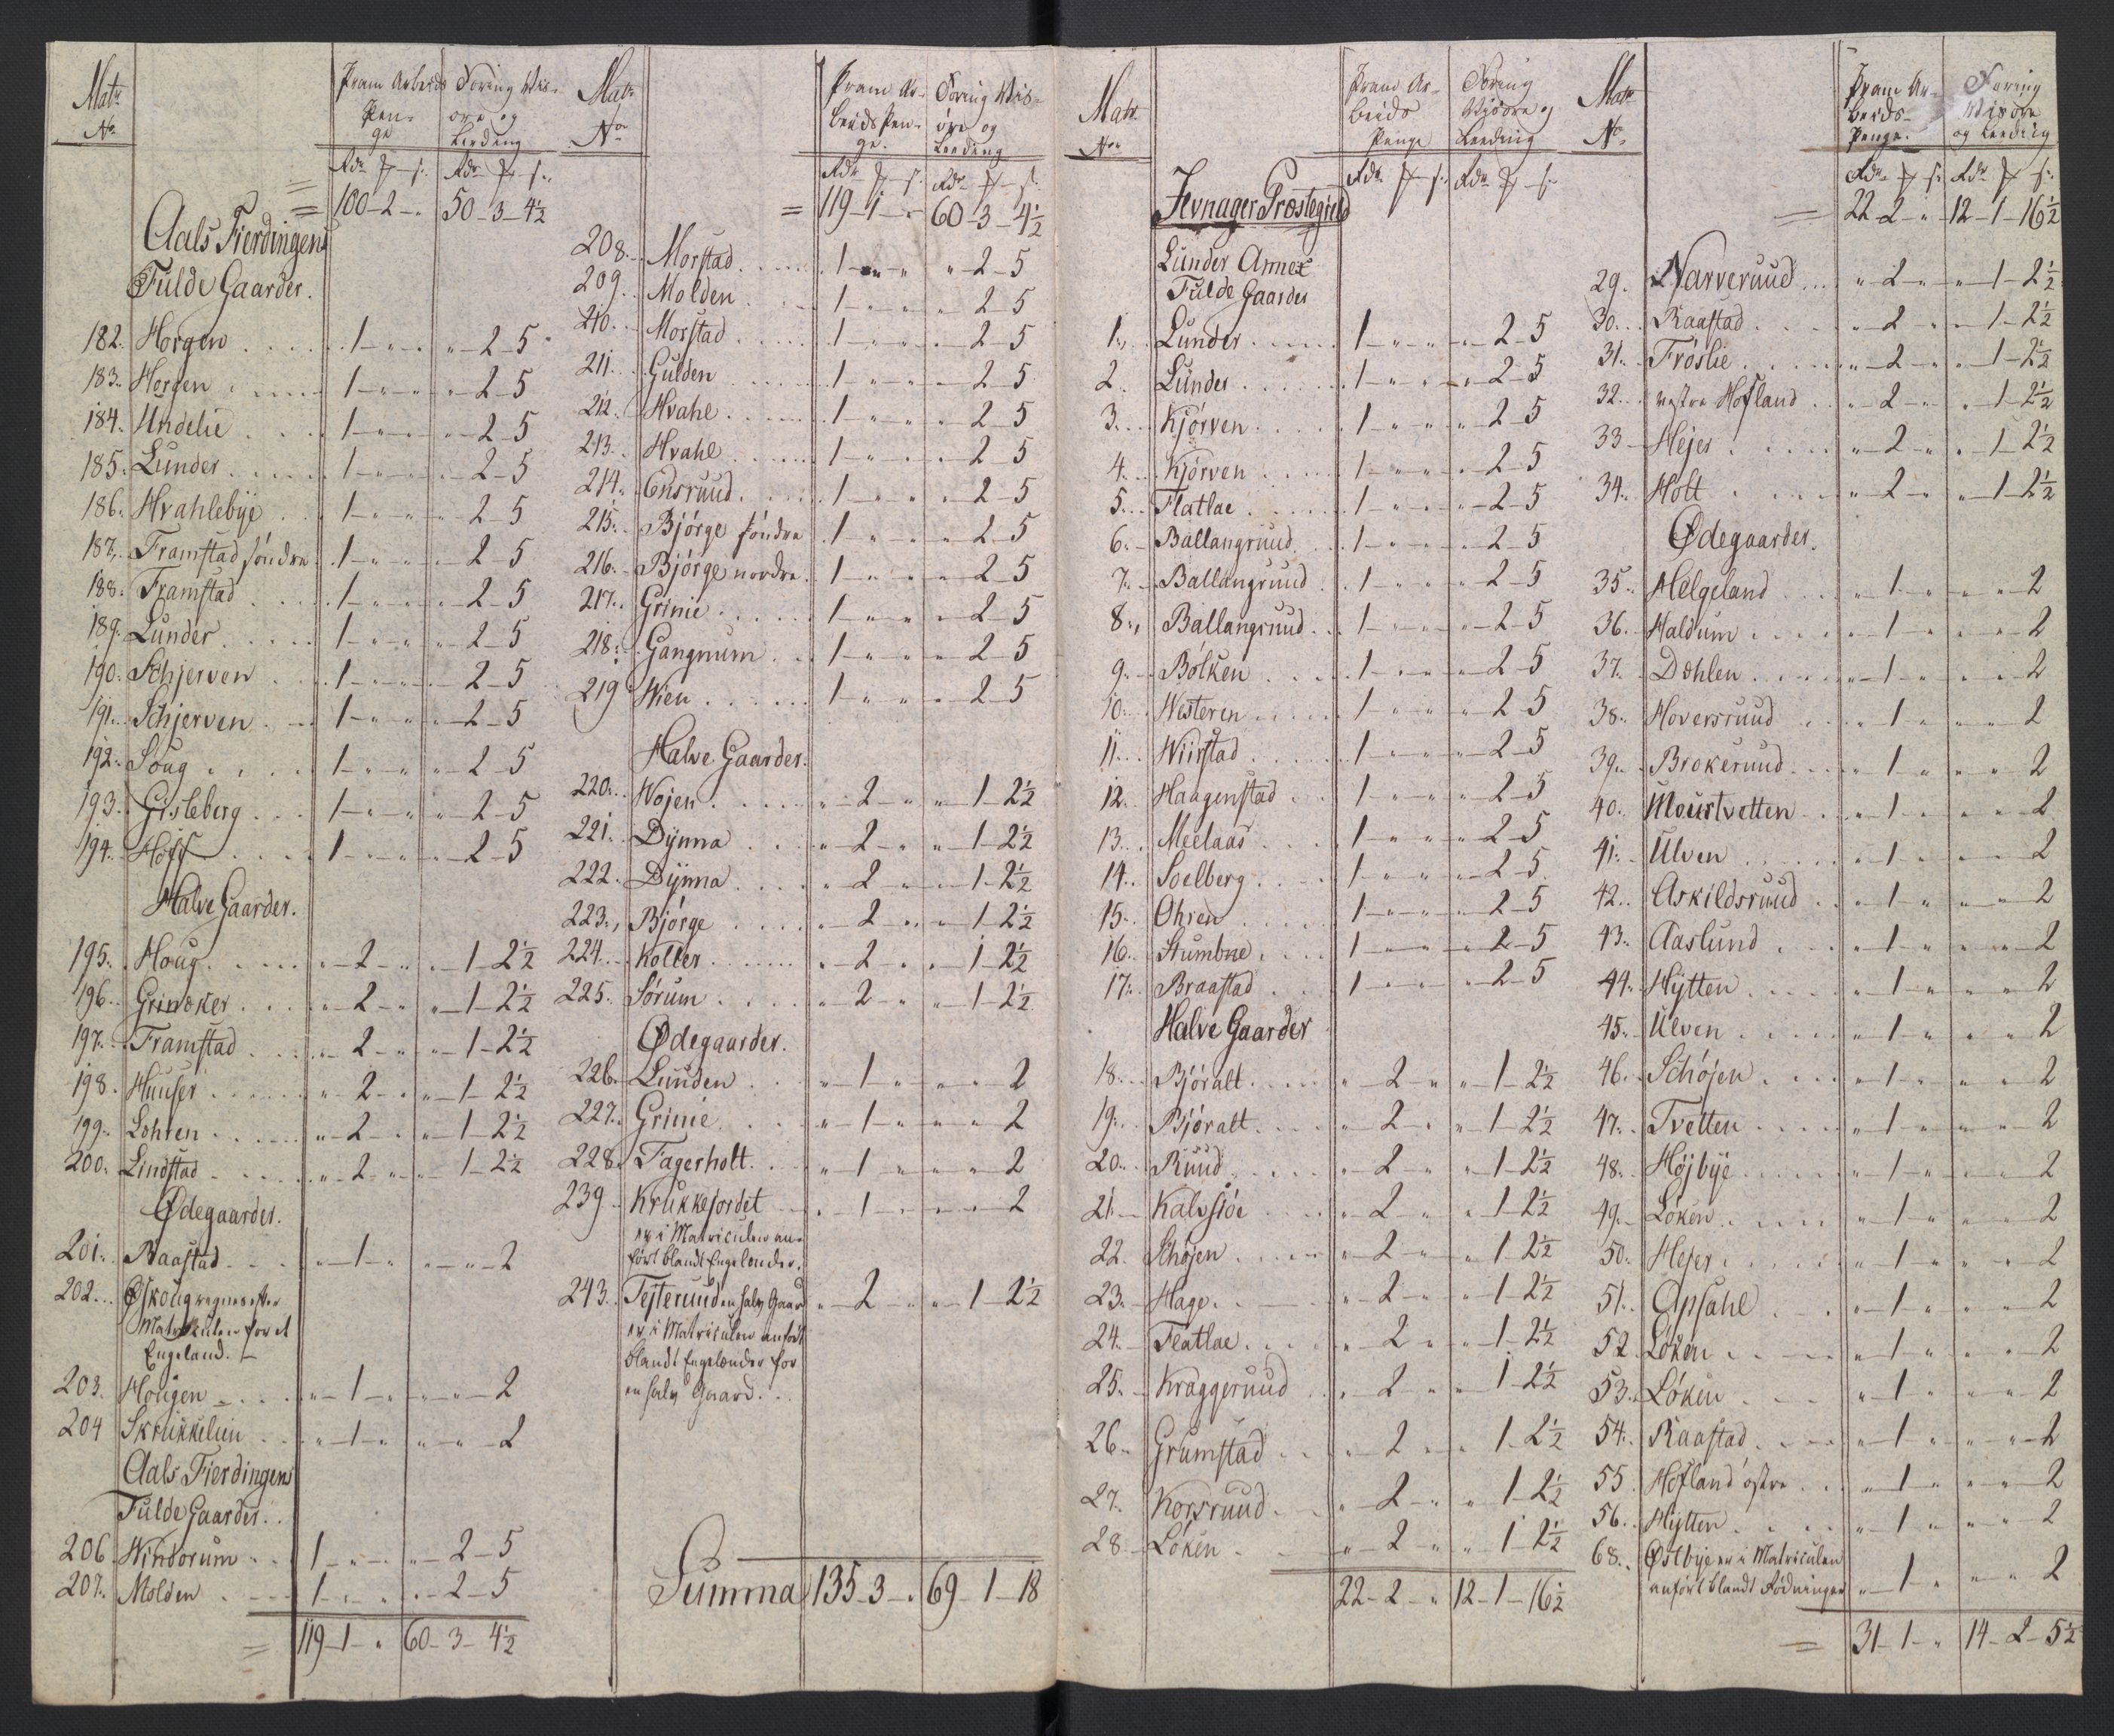 Matr No
Pram Arbeids Penge
Foring Wisøre og Leeding
Rdr
100-2-" 50-3-4½
Aals Fierdingens
Fulde Gaarder.
182. Horgen 1-"-" "-2-5
183. Horgen 1-"-" "-2-5
184. Undelie 1-"-" "-2-5
185. Lunder 1-"-" "-2-5
186. Hvahlebye 1-"-" "-2-5
187. Framstad søndre 1-"-" "-2-5
188. Framstad 1-"-" "-2-5
189. Lunder 1-"-" "-2-5
190. Schjerven 1-"-" "-2-5
191. Schjerven 1-"-" "-2-5
192. Soug 1-"-" "-2-5
193. Gisleberg 1-"-" "-2-5
194. Hoff 1-"-" "-2-5
Halve Gaarder.
195. Houg "-2-" "-1-2½
196. Grinaker "-2-" "-1-2½
197. Framstad "-2-" "-1-2½
198. Huuser "-2-" "-1-2½
199. Lohren "-2-" "-1-2½
200. Lindstad "-2-" "-1-2½
Ødegaarder.
201. Raastad "-1-" "-"-2
202. Øskoug regnes efter
Matriculen for et
Engeland.
203. Hougen "-1-" "-"-2
204 Skrukkelien "-1-" "-"-2
Aals Fierdingens
Fulde Gaarder.
206 Windorum 1-"-" "-2-5
207. Molden 1-"-" "-2-5
119-1-" 60-3-4½
Matr No
Pram Arbeids Penge.
Foring Wisøre og Leeding
Rdr
119-1-" 60-3-4½
208. Morstad 1-"-" "-2-5
209. Molden 1-"-" "-2-5
210. Morstad 1-"-" "-2-5
211. Gulden 1-"-" "-2-5
212. Hvahl 1-"-" "-2-5
213. Hvahl 1-"-" "-2-5
214. Ensruud 1-"-" "-2-5
215. Bjørge søndre 1-"-" "-2-5
216. Bjørge nordre 1-"-" "-2-5
217. Grinie 1-"-" "-2-5
218. Gangnum 1-"-" "-2-5
219 Wien 1-"-" "-2-5
Halve Gaarder.
220. Wojen "-2-" "-1-2½
221. Dynna "-2-" "-1-2½
222. Dynna "-2-" "-1-2½
223. Bjørge "-2-" "-1-2½
224. Koller "-2-" "-1-2½
225. Sørum "-2-" "-1-2½
Ødegaarder.
226. Lunden "-1-" "-"-2
227. Grinie "-1-" "-"-2
228. Fagerholt "-1-" "-"-2
239 Krukkejordet "-1-" "-"-2
er i Matriculen an-
ført blandt Engelænder.
243. Tejteruud en halv Gaard "-2-" "-1-2½
er i Matriculen anført
blandt Engelænder for
en halv Gaard.
Summa 135-3-" 69-1-18
Matr No
Pram Arbeids Penge
Foring Wisøre og Leeding
Rdr
Jevnager Præstegield
Lunder Annex
Fulde Gaarder
1. Lunder 1-"-" "-2-5
2. Lunder 1-"-" "-2-5
3. Kjørven 1-"-" "-2-5
4. Kjørven 1-"-" "-2-5
5. Flatlae 1-"-" "-2-5
6. Ballangruud 1-"-" "-2-5
7. Ballangruud 1-"-" "-2-5
8. Ballangruud 1-"-" "-2-5
9. Bølken 1-"-" "-2-5
10. Westeren 1-"-" "-2-5
11. Wiirstad 1-"-" "-2-5
12. Haagenstad 1-"-" "-2-5
13. Meelaas 1-"-" "-2-5
14. Soelberg 1-"-" "-2-5
15. Ohren 1-"-" "-2-5
16. Stumbne 1-"-" "-2-5
17. Braastad 1-"-" "-2-5
Halve Gaarder
18. Bjøralt "-2-" "-1-2½
19. Bjøralt "-2-" "-1-2½
20. Ruud "-2-" "-1-2½
21. Kalvsiøe "-2-" "-1-2½
22. Schøjen "-2-" "-1-2½
23. Hage "-2-" "-1-2½
24. Flatlae "-2-" "-1-2½
25. Kraggeruud "-2-" "-1-2½
26. Grumstad "-2-" "-1-2½
27. Korsruud "-2-" "-1-2½
28. Løken "-2-" "-1-2½
22-2-" 12-1-16½
Matr No
Pram Arbeids Penge.
Foring Wisøre og Leeding
Rdr
22-2-" 12-1-16½
29. Narveruud "-2-" "-1-2½
30. Raastad "-2-" "-1-2½
31. Frøslie "-2-" "-1-2½
32. vestre Hofland "-2-" "-1-2½
33 Hejer "-2-" "-1-2½
34. Holt "-2-" "-1-2½
Ødegaarder.
35. Helgeland "-1-" "-"-2
36. Haldum "-1-" "-"-2
37. Dohlen "-1-" "-"-2
38. Hoversruud "-1-" "-"-2
39. Brokeruud "-1-" "-"-2
40. Mourtvetten "-1-" "-"-2
41. Ulven "-1-" "-"-2
42. Askildsruud "-1-" "-"-2
43. Aaslund "-1-" "-"-2
44. Hytten "-1-" "-"-2
45. Ulven "-1-" "-"-2
46. Schøjen "-1-" "-"-2
47. Tvetten "-1-" "-"-2
48. Højbye "-1-" "-"-2
49. Løken "-1-" "-"-2
50. Hejer "-1-" "-"-2
51. Opsahl "-1-" "-"-2
52. Løken "-1-" "-"-2
53. Løken "-1-" "-"-2
54. Raastad "-1-" "-"-2
55. Hofland østre "-1-" "-"-2
56. Hytten "-1-" "-"-2
68. Østbye er i Matriculen
anført blandt Rødninger "-1-" "-"-2
31-1-" 14-2-5½